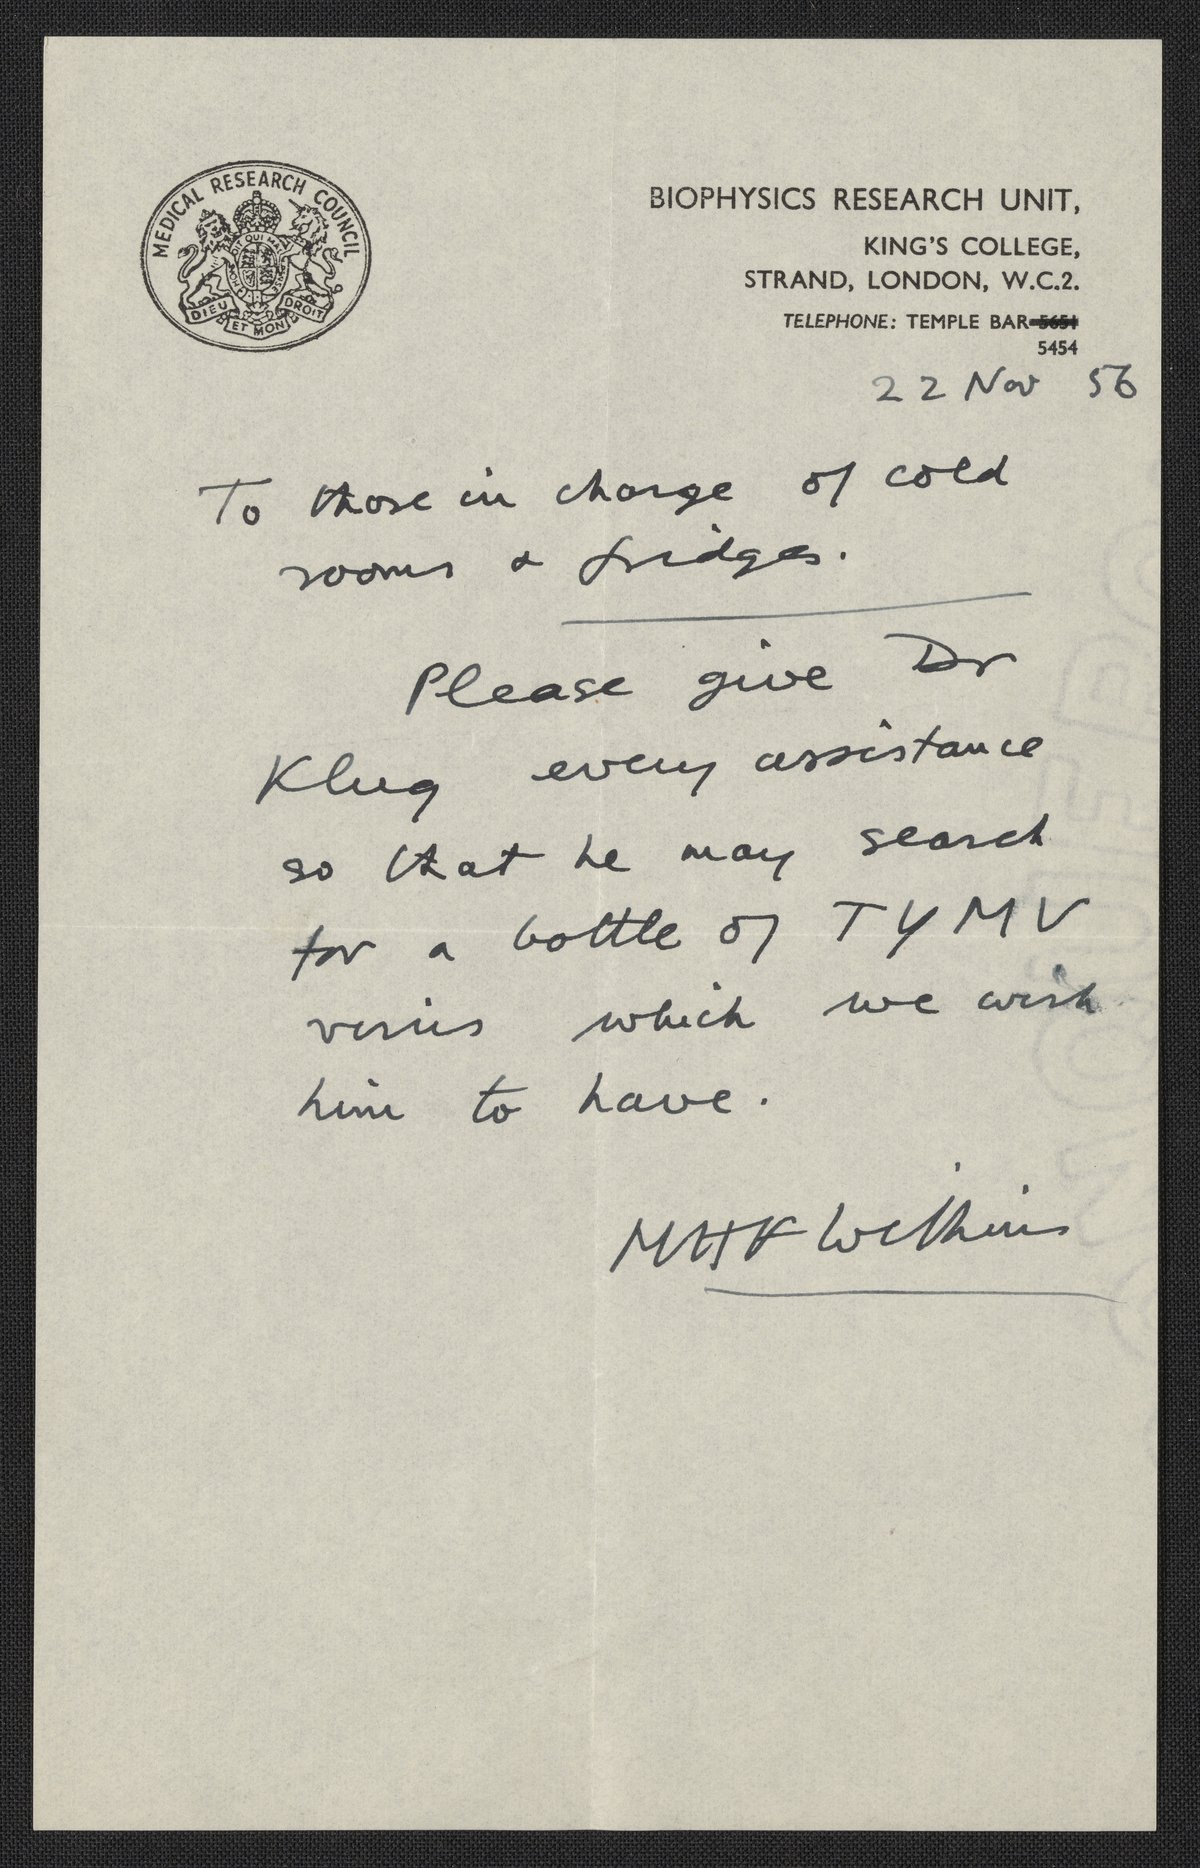 MEDICAL RESEARCH COUNCIL
DIEU ET MON DROIT
BIOPHYSICS RESEARCH UNIT,
KING'S COLLEGE,
STRAND, LONDON, W.C.2.
TELEPHONE: TEMPLE BAR 5651
5454
22 Nov 56
To those in charge of cold
rooms & fridges.
Please give Dr
Klug every assistance
so that he may search
for a bottle of TYMV
virus which we wish
him to have.
MHF Wilkins